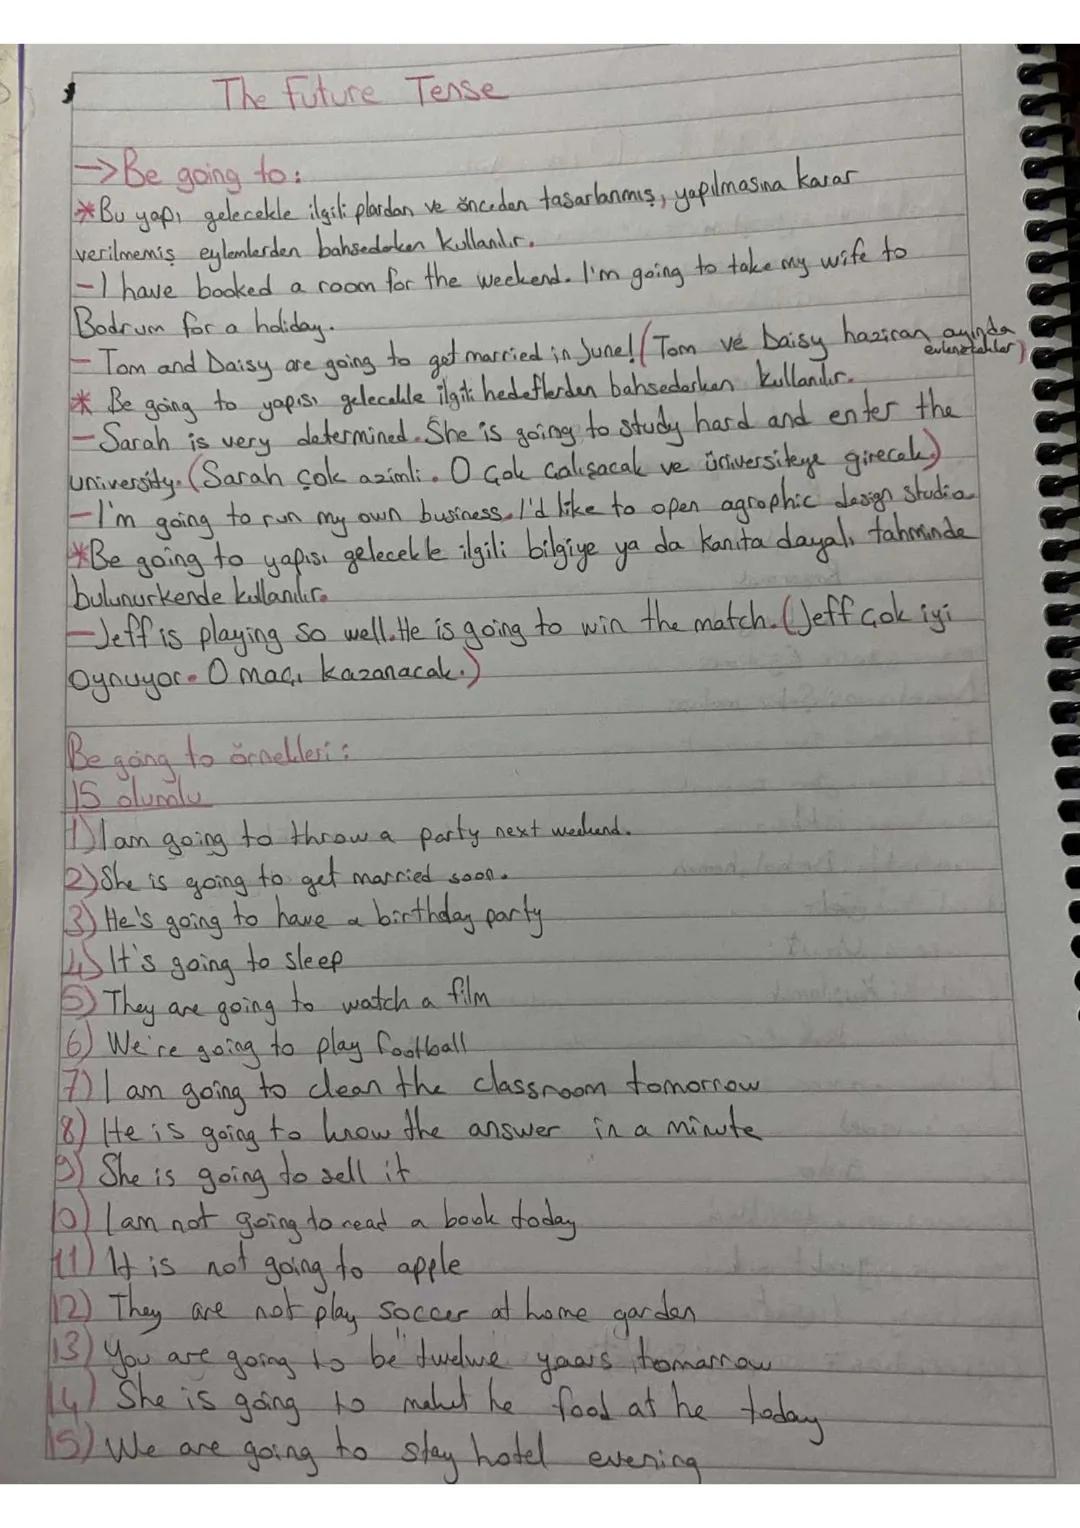 The Future Tense
→Be going to:
*Bu yapı gelecekle ilgili plardan ve önceden tasarlanmış, yapılmasına karar
verilmemiş eylemlerden bahsederken kullanılır.
-I have booked a room for the weekend. I'm going to take my wife to
Bodrum for a holiday.
- Tom and Daisy are going to get married in June! (Tom ve Daisy haziran ayında
evlenecekler)
* Be going to yapısı gelecekle ilgili hedeflerden bahsederken kullanılır.
-Sarah is very determined. She is going to study hard and enter the
university. (Sarah çok azimli. O çok çalışacak ve üniversiteye girecek.)
-I'm going to run my own business. I'd like to open agrophic design studia
*Be going to yapısı gelecekle ilgili bilgiye ya da kanıta dayalı tahminde
bulunurkende kullanılır.
-Jeff is playing so well. He is going to win the match. (Jeff çok iyi
oynuyor. O maçı kazanacak.)
Be going to örnekleri:
15 olumlu
1) I am going to throw a party next weekend.
2) She is going to get married soon.
3) He's going to have a birthday party
4) It's going to sleep
5) They are going to watch a film
6) We're going to play football
7) I am going to clean the classroom tomorrow
8) He is going to know the answer in a minute
9) She is going to sell it
10) I am not going to read a book today
11) It is not going to apple
12) They are not play soccer at home garden
13) You are going to be twelwe yaars tomarrow
14) She is going to he food at he today
15) We are going to stay hotel evening